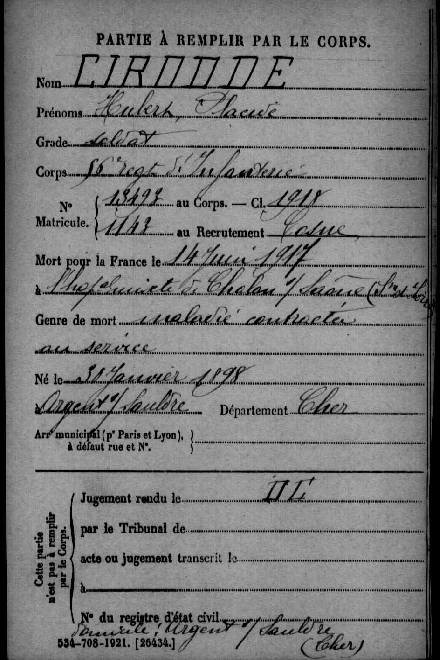 PARTIE À REMPLIR PAR LE CORPS.
Nom CIRODDE
Prénoms Hubert, Placide
Grade soldat
Corps 56e regt d'Infanterie
No Matricule. 13493 au Corps. — Cl. 1918
1143 au Recrutement Cosne
Mort pour la France le 14 Juin 1917
à l'hop. mixte de Chalon s/ Saône (Sne et Loire
Genre de mort maladie contractée
au service
Né le 31 Janvier 1898
Argent s/ Sauldre Département Cher
Arrt municipal (pr Paris et Lyon), à défaut rue et No.
Cette partie n'est pas à remplir par le Corps.
Jugement rendu le
par le Tribunal de
acte ou jugement transcrit le
à
No du registre d'état civil
domicile: Argent s/ Sauldre
(Cher)
534-708-1921. [26434.]